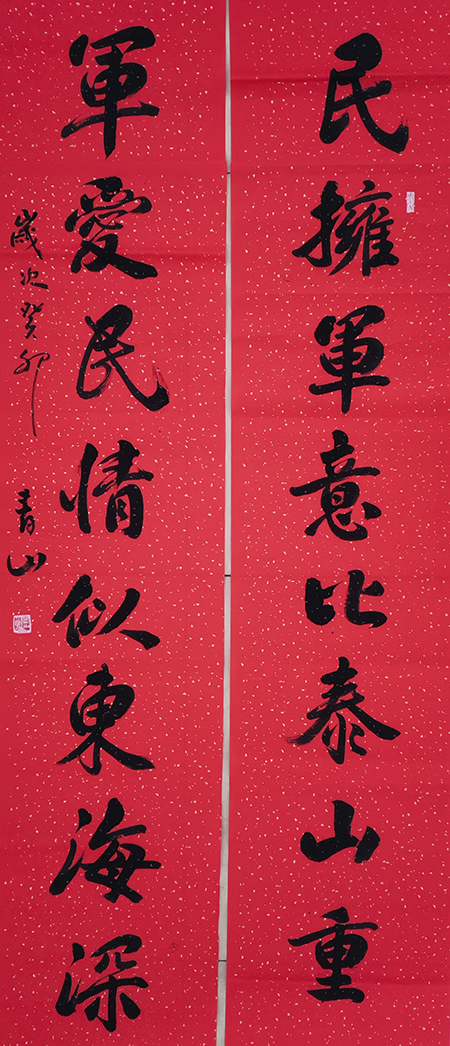 民擁軍意比泰山重
軍愛民情似東海深
歲次癸卯 青山